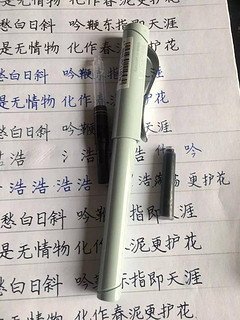 是无情物 化作春泥更护花
愁白日斜 吟鞭东指即天涯
是无情物 化作 护花
愁白日斜 吟 指即天涯
是无情物 化作 更护花
愁白日斜 吟鞭 指即天涯
是无情物 化作 泥更护花
浩浩 浩浩 化 吟
浩浩浩 浩浩 更护花
愁白日斜 吟 指即天涯
是无情物 化作 泥更护花
愁白日斜 吟鞭东指即天涯
是无情物 化作春泥更护花